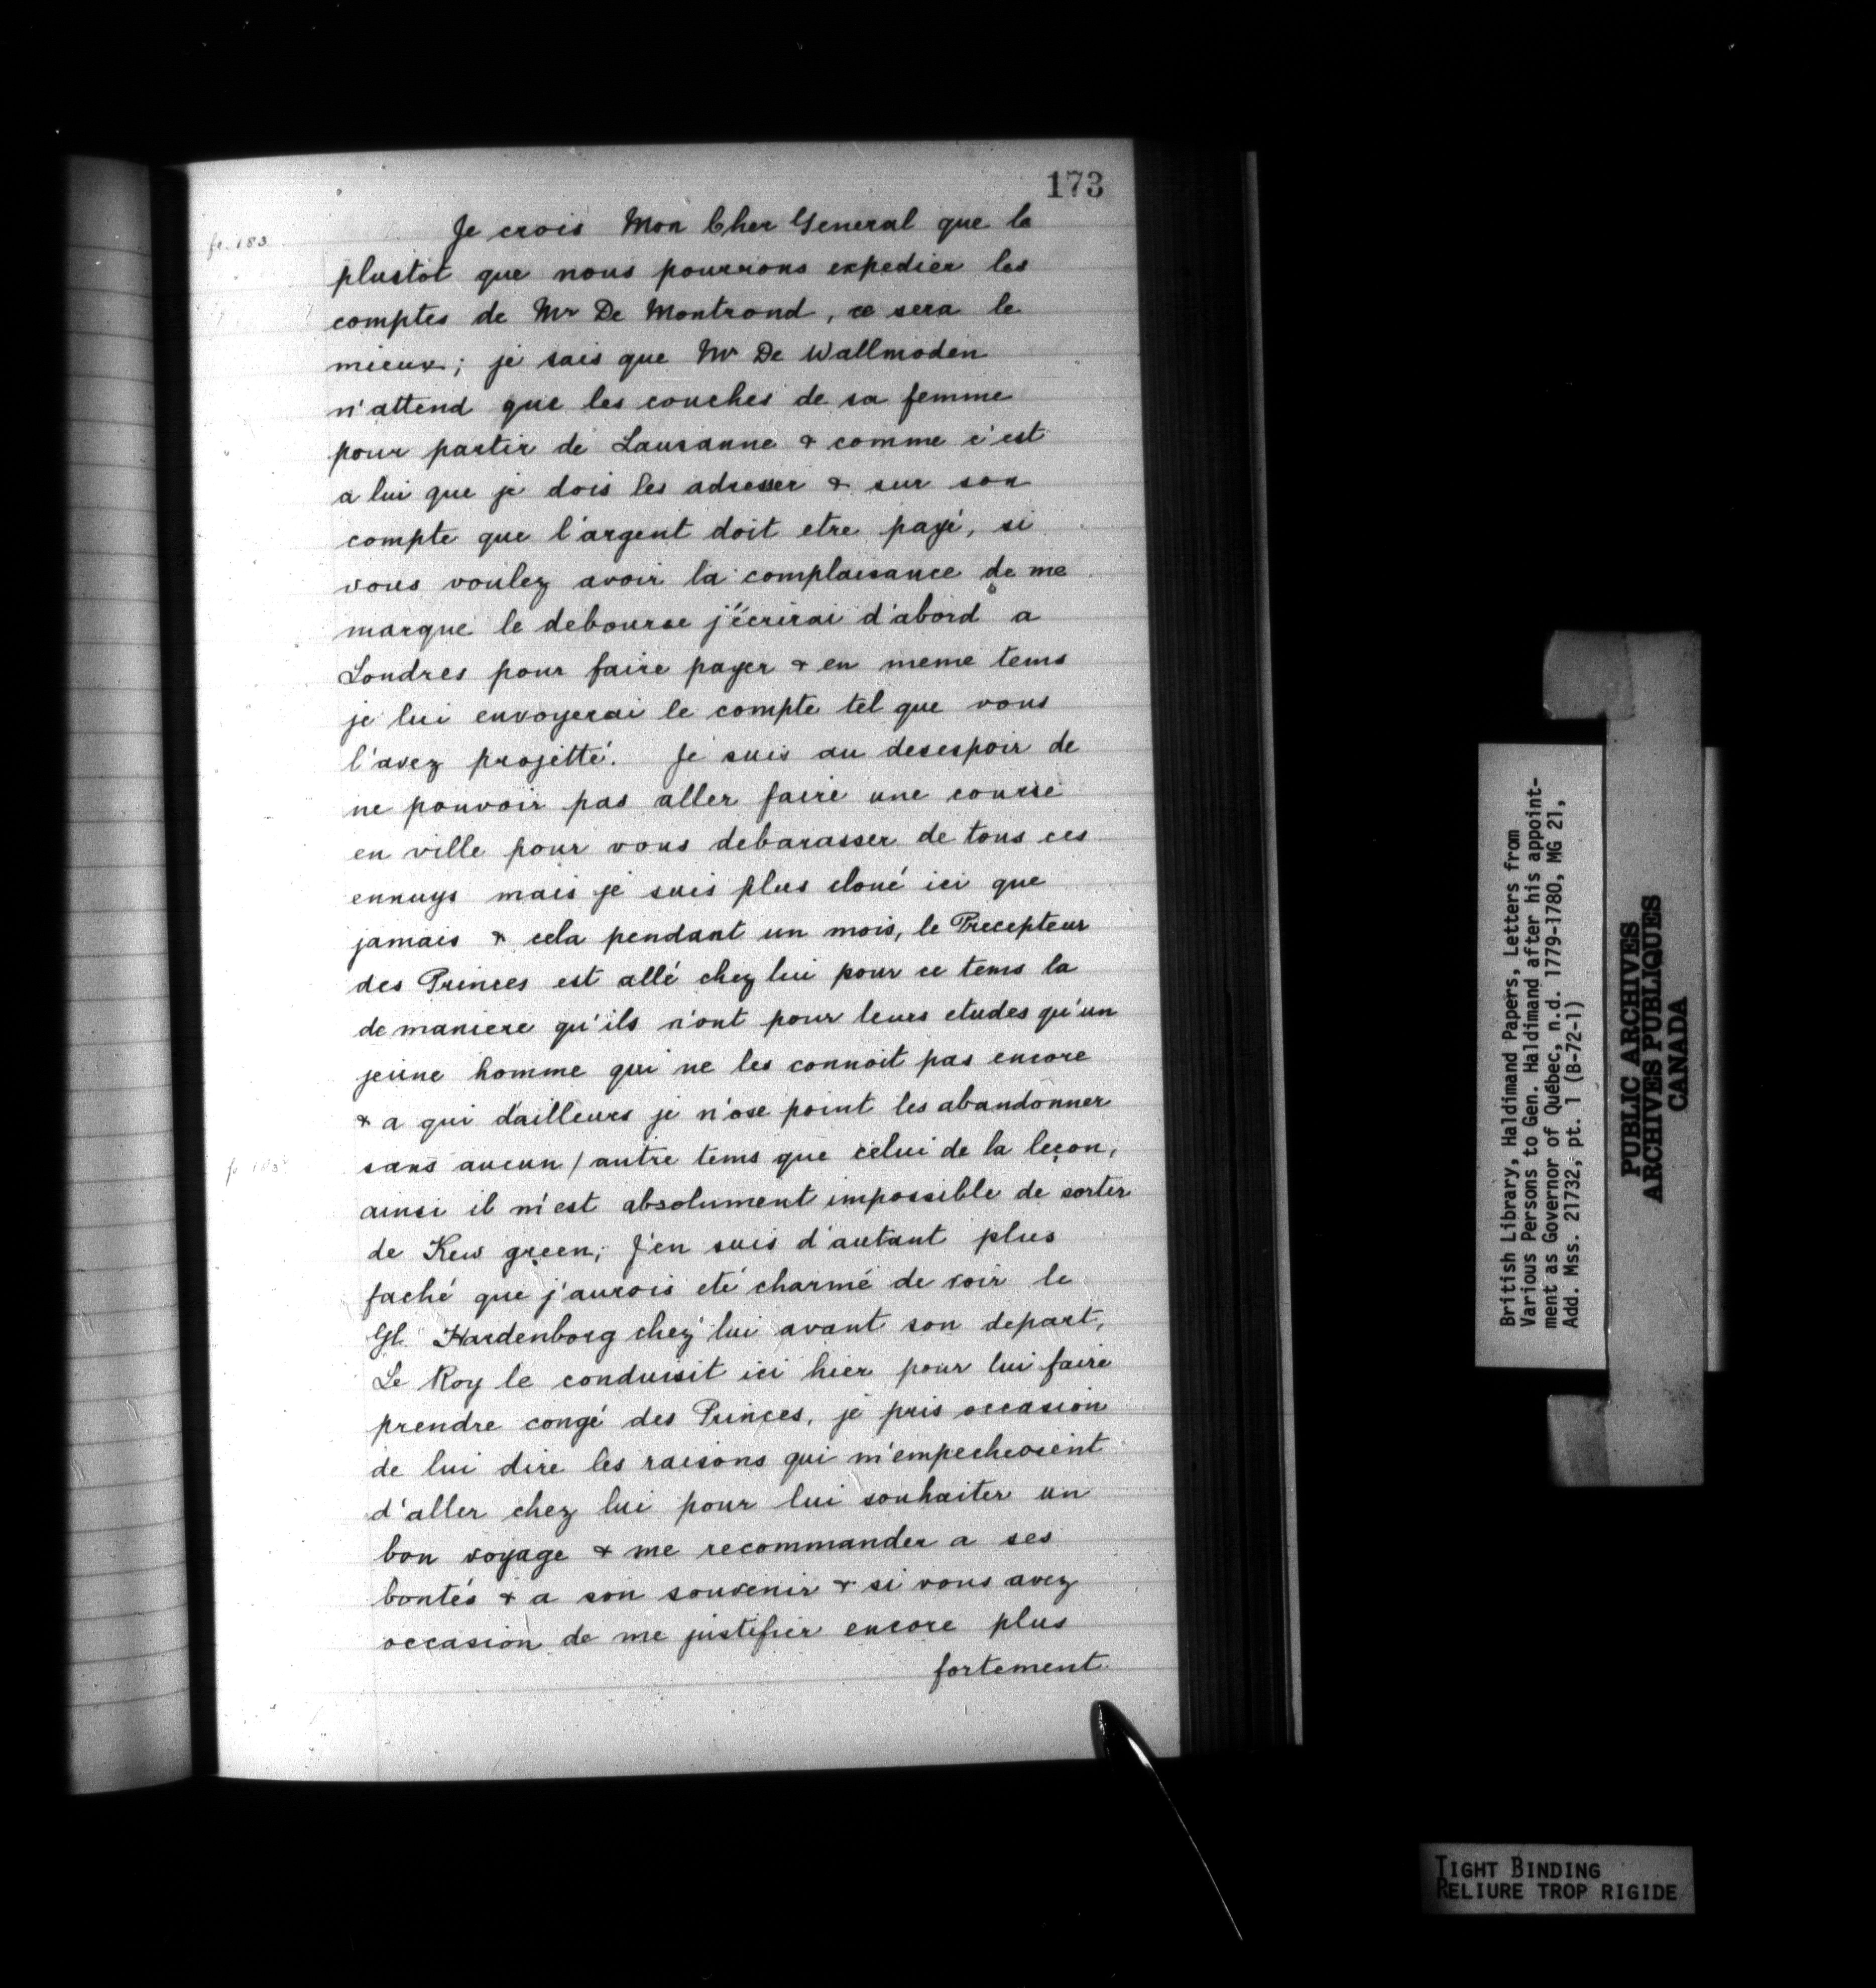 173
fr. 183
Je crois Mon Cher General que le
plustot que nous pourrons expedier les
comptes de Mr De Montrond, ce sera le
mieux; je sais que Mr De Wallmoden
n'attend que les couches de sa femme
pour partir de Lausanne & comme c'est
a lui que je dois les adresser & sur son
compte que l'argent doit etre payé, si
vous voulez avoir la complaisance de me
marque le debourse j'écrirai d'abord a
Londres pour faire payer & en meme tems
je lui envoyerai le compte tel que vous
l'avez projetté. Je suis au desespoir de
ne pouvoir pas aller faire une course
en ville pour vous debarasser de tous ces
ennuys mais je suis plus cloué ici que
jamais & cela pendant un mois, le Precepteur
des Princes est allé chez lui pour ce tems la
de maniere qu'ils n'ont pour leurs etudes qu'un
jeune homme qui ne les connoit pas encore
& a qui d'ailleurs je n'ose point les abandonner
sans aucun / autre tems que celui de la leçon,
ainsi il m'est absolument impossible de sortir
de Kew green; J'en suis d'autant plus
faché que j'aurois eté charmé de voir le
Gl. Hardenborg chez lui avant son depart,
Le Roy le conduisit ici hier pour lui faire
prendre congé des Princes, je pris occasion
de lui dire les raisons qui m'empecheoient
d'aller chez lui pour lui souhaiter un
bon voyage & me recommander a ses
bontés & a son souvenir & si vous avez
occasion de me justifier encore plus
fortement.
British Library, Haldimand Papers, Letters from
Various Persons to Gen. Haldimand after his appoint-
ment as Governor of Québec, n.d. 1779-1780, MG 21,
Add. Mss. 21732, pt. 1 (B-72-1)
PUBLIC ARCHIVES
ARCHIVES PUBLIQUES
CANADA
TIGHT BINDING
RELIURE TROP RIGIDE